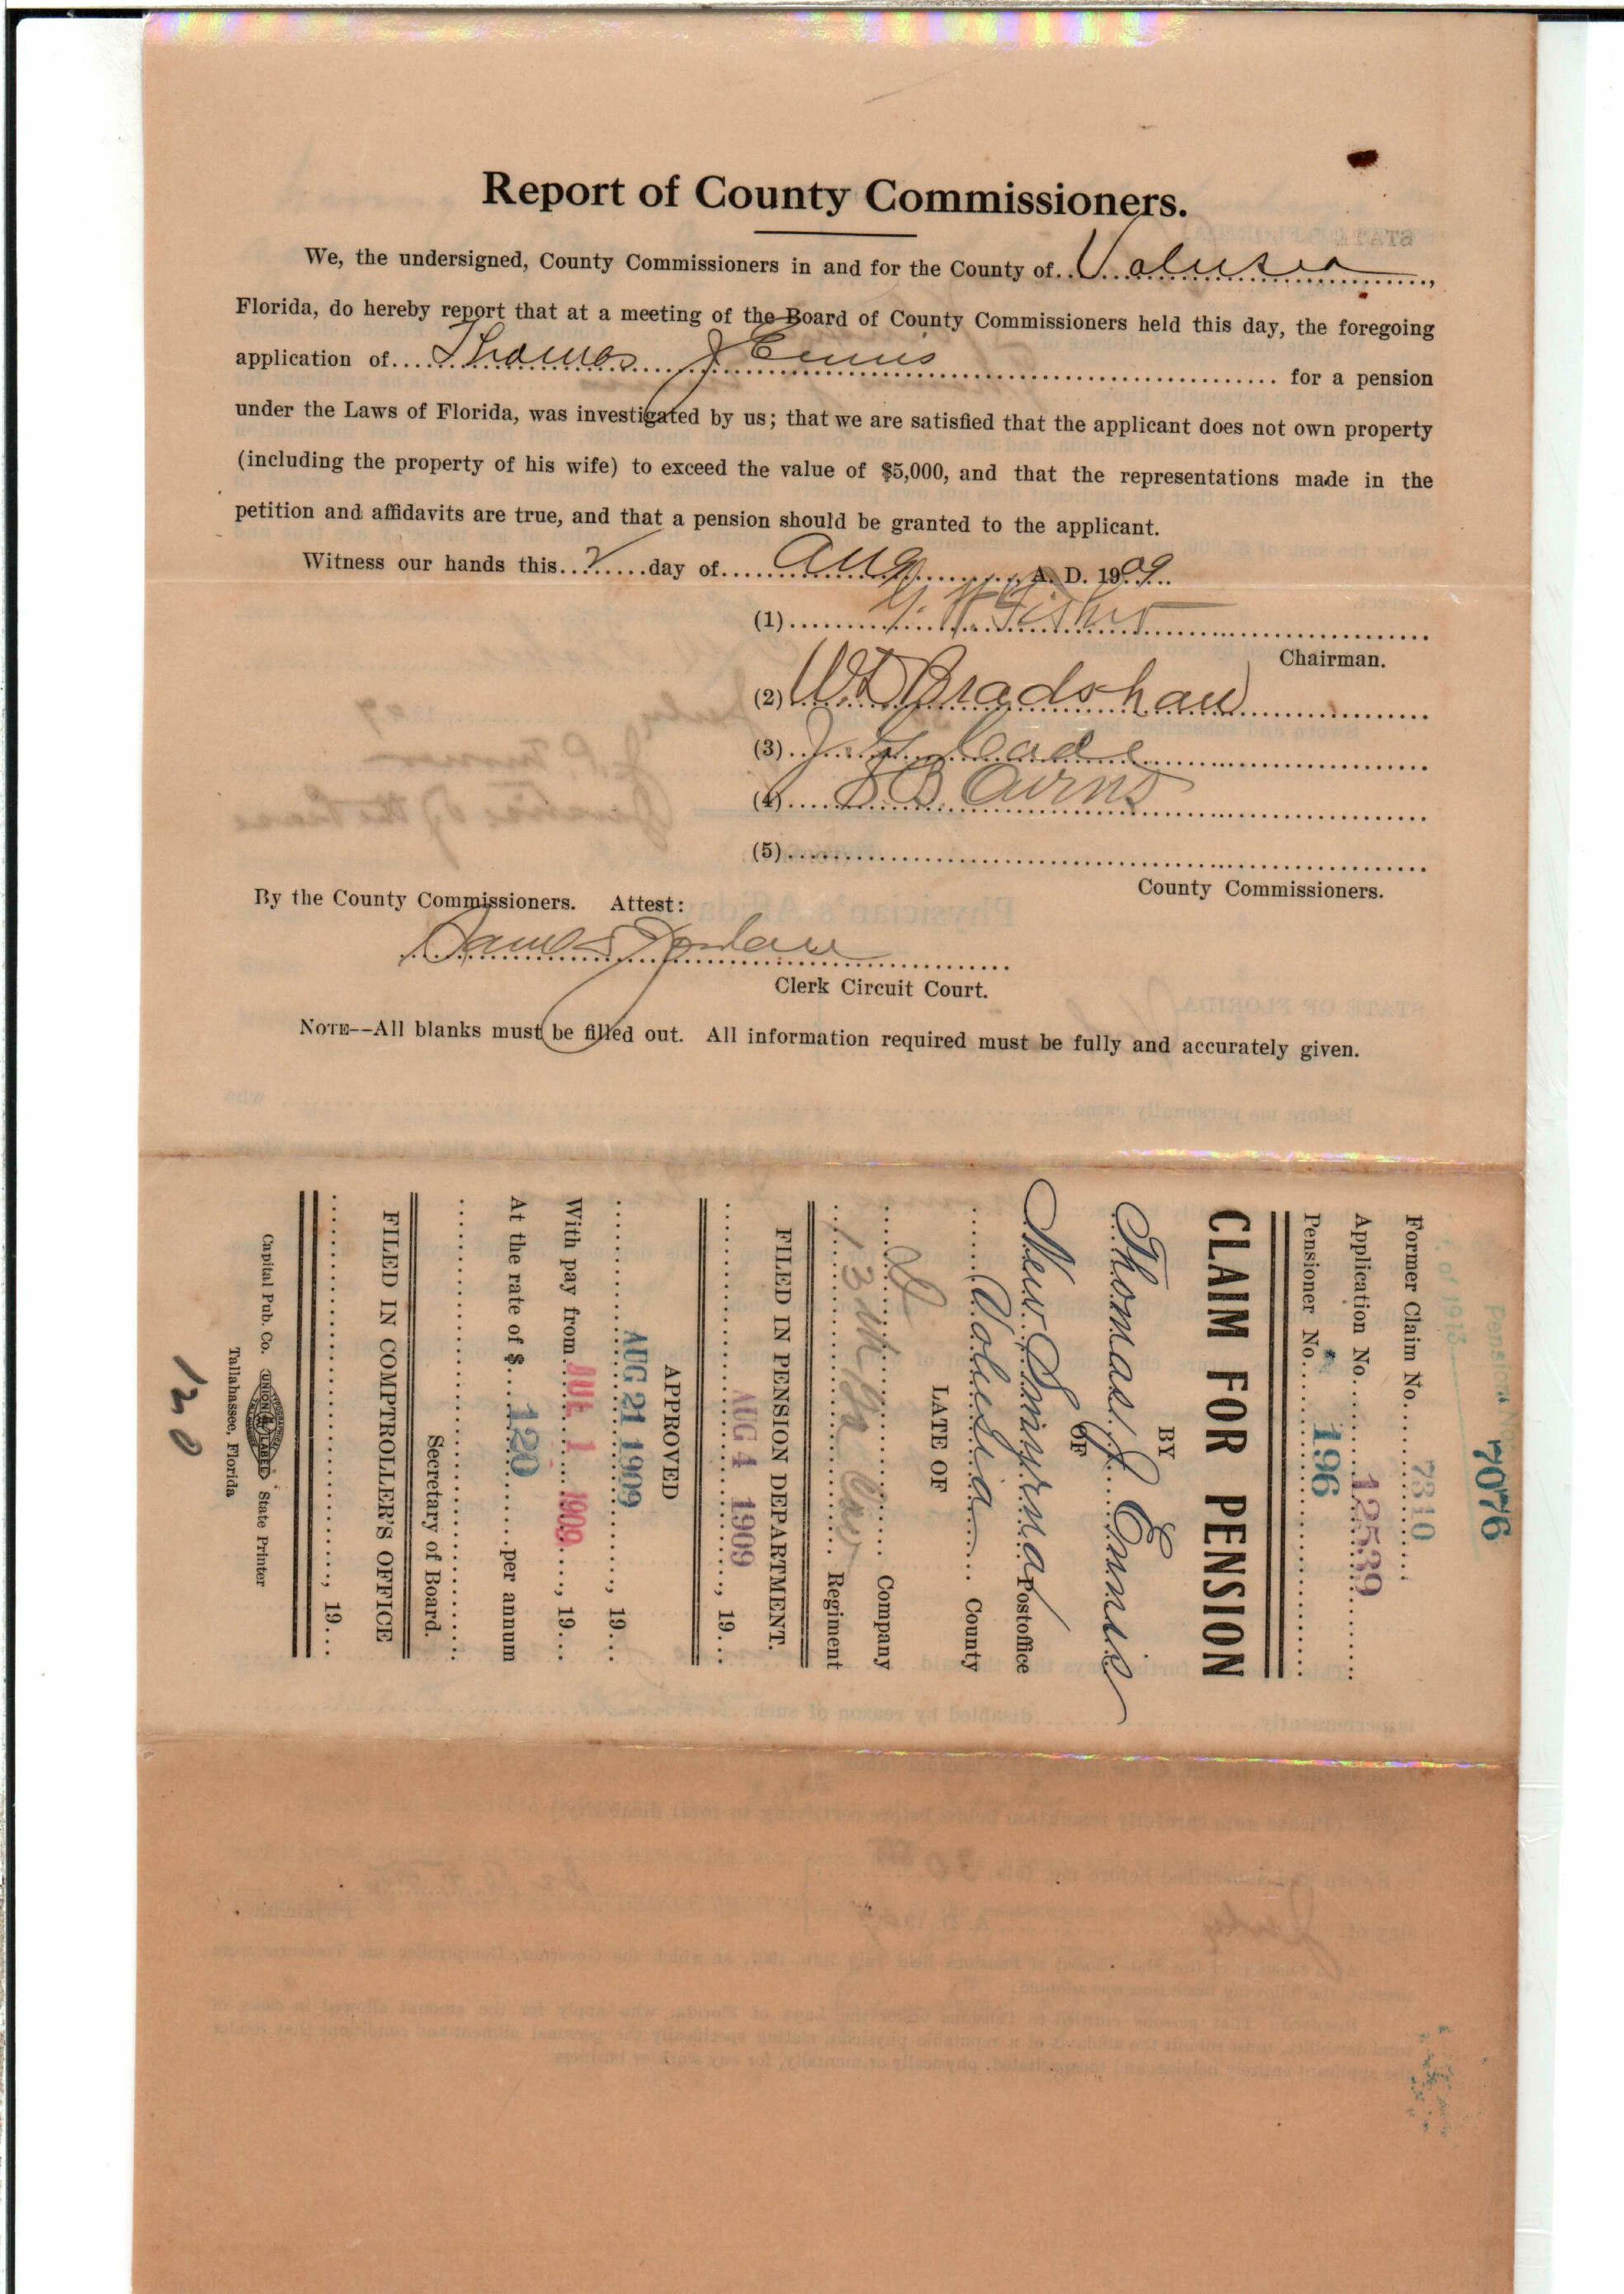 Report of County Commissioners.
We, the undersigned, County Commissioners in and for the County of..Volusia,
Florida, do hereby report that at a meeting of the Board of County Commissioners held this day, the foregoing
application of....Thomas J Ennis.... for a pension
under the Laws of Florida, was investigated by us; that we are satisfied that the applicant does not own property
(including the property of his wife) to exceed the value of $5,000, and that the representations made in the
petition and affidavits are true, and that a pension should be granted to the applicant.
Witness our hands this..2....day of....Aug.... A. D. 1909..
(1)....Fisher....
Chairman.
(2) W L Bradshaw
(3)
(4)
(5)
County Commissioners.
By the County Commissioners. Attest:
Clerk Circuit Court.
NOTE--All blanks must be filled out. All information required must be fully and accurately given.
Pension No.
7076
of 1913
Former Claim No. 7310
Application No. 12539
Pensioner No. 196
CLAIM FOR PENSION
BY
Thomas J Ennis
OF
New Smyrna Postoffice
Volusia County
LATE OF
Company
13th Regiment
FILED IN PENSION DEPARTMENT.
AUG 4 1909, 19...
APPROVED
AUG 21 1909, 19...
With pay from JUL 1 1909, 19...
At the rate of $ 120 per annum
Secretary of Board.
FILED IN COMPTROLLER'S OFFICE
, 19...
Capital Pub. Co. UNION LABEL State Printer
Tallahassee, Florida
120